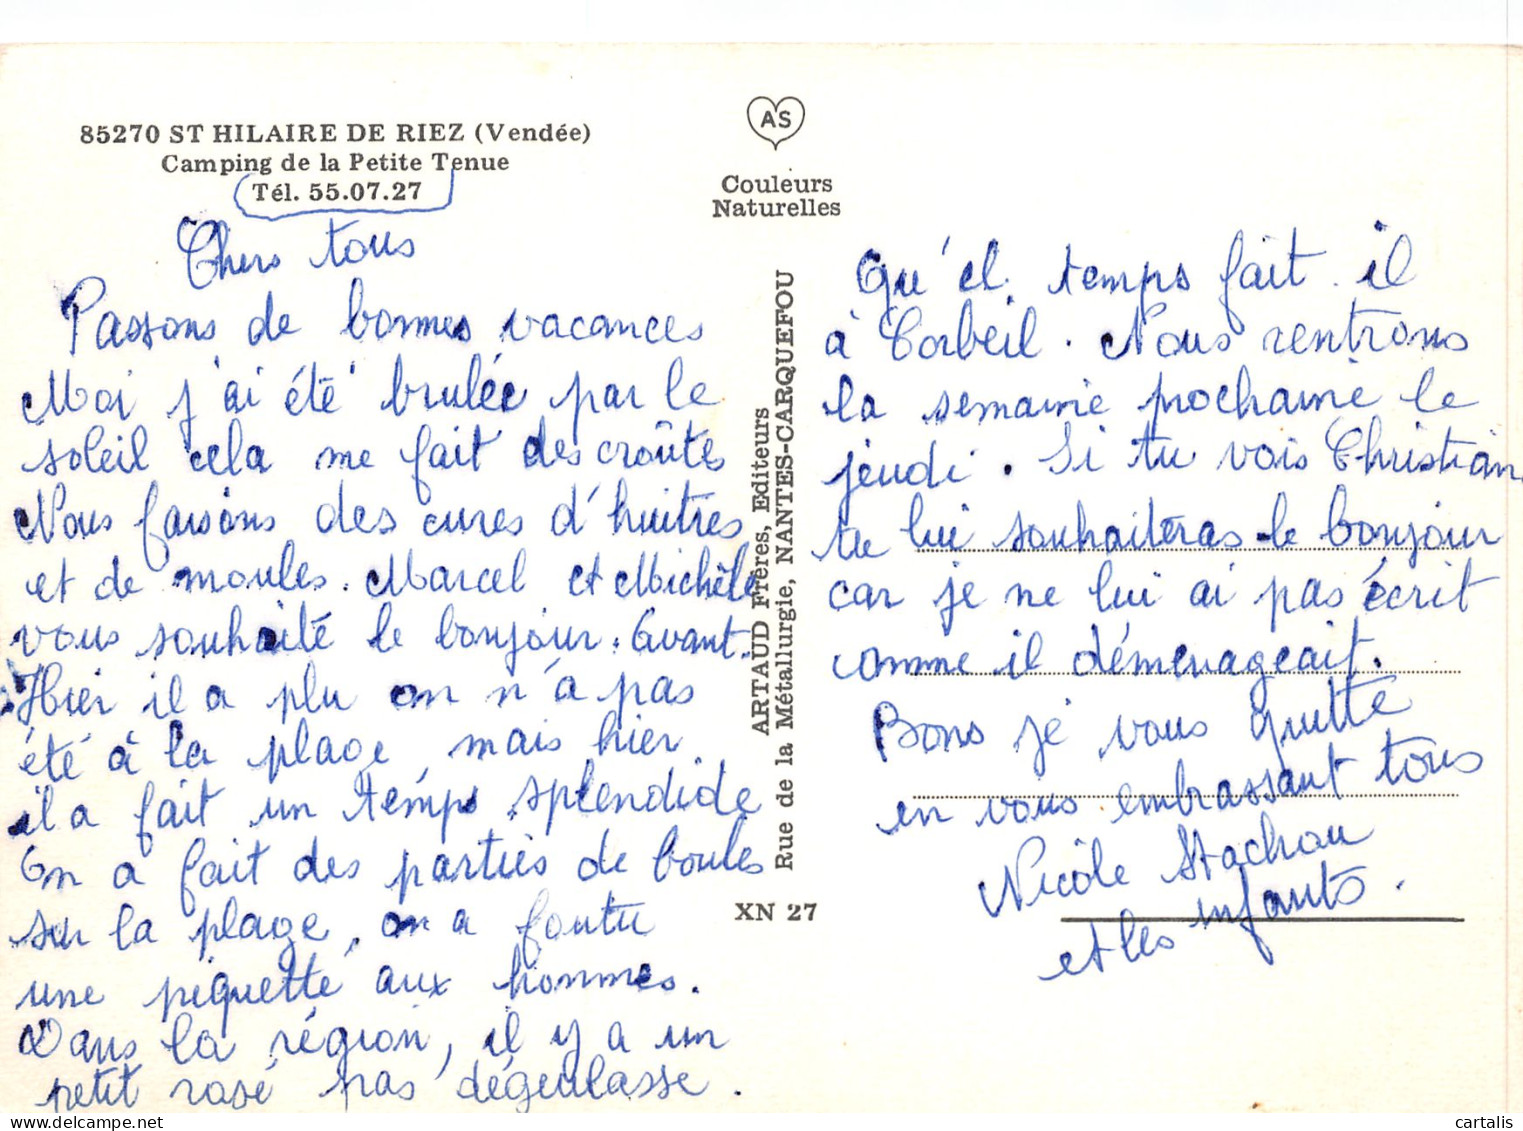 85270 ST HILAIRE DE RIEZ (Vendée)
Camping de la Petite Tenue
Tél. 55.07.27
Chers tous
Passons de bonnes vacances
Moi j'ai été brulée par le
soleil cela me fait des croûtes
Nous faisons des cures d'huitres
et de moules. Marcel et Michèle
vous souhaite le bonjour. Avant.
Hier il a plu on n'a pas
été à la plage, mais hier
il a fait un temps splendide
On a fait des parties de boules
sur la plage, on a foutu
une piquette aux hommes.
Dans la région, il y a un
petit rosé pas dégeulasse.
AS
Couleurs
Naturelles
ARTAUD Frères, Editeurs
Rue de la Métallurgie, NANTES-CARQUEFOU
XN 27
Qu'el temps fait il
à Corbeil. Nous rentrons
la semaine prochaine le
jeudi. Si tu vois Christian,
tu lui souhaiteras le bonjour
car je ne lui ai pas écrit
comme il démenageait.
Bons je vous quitte
en vous embrassant tous
Nicole Stachou
et les enfants.
cartalis